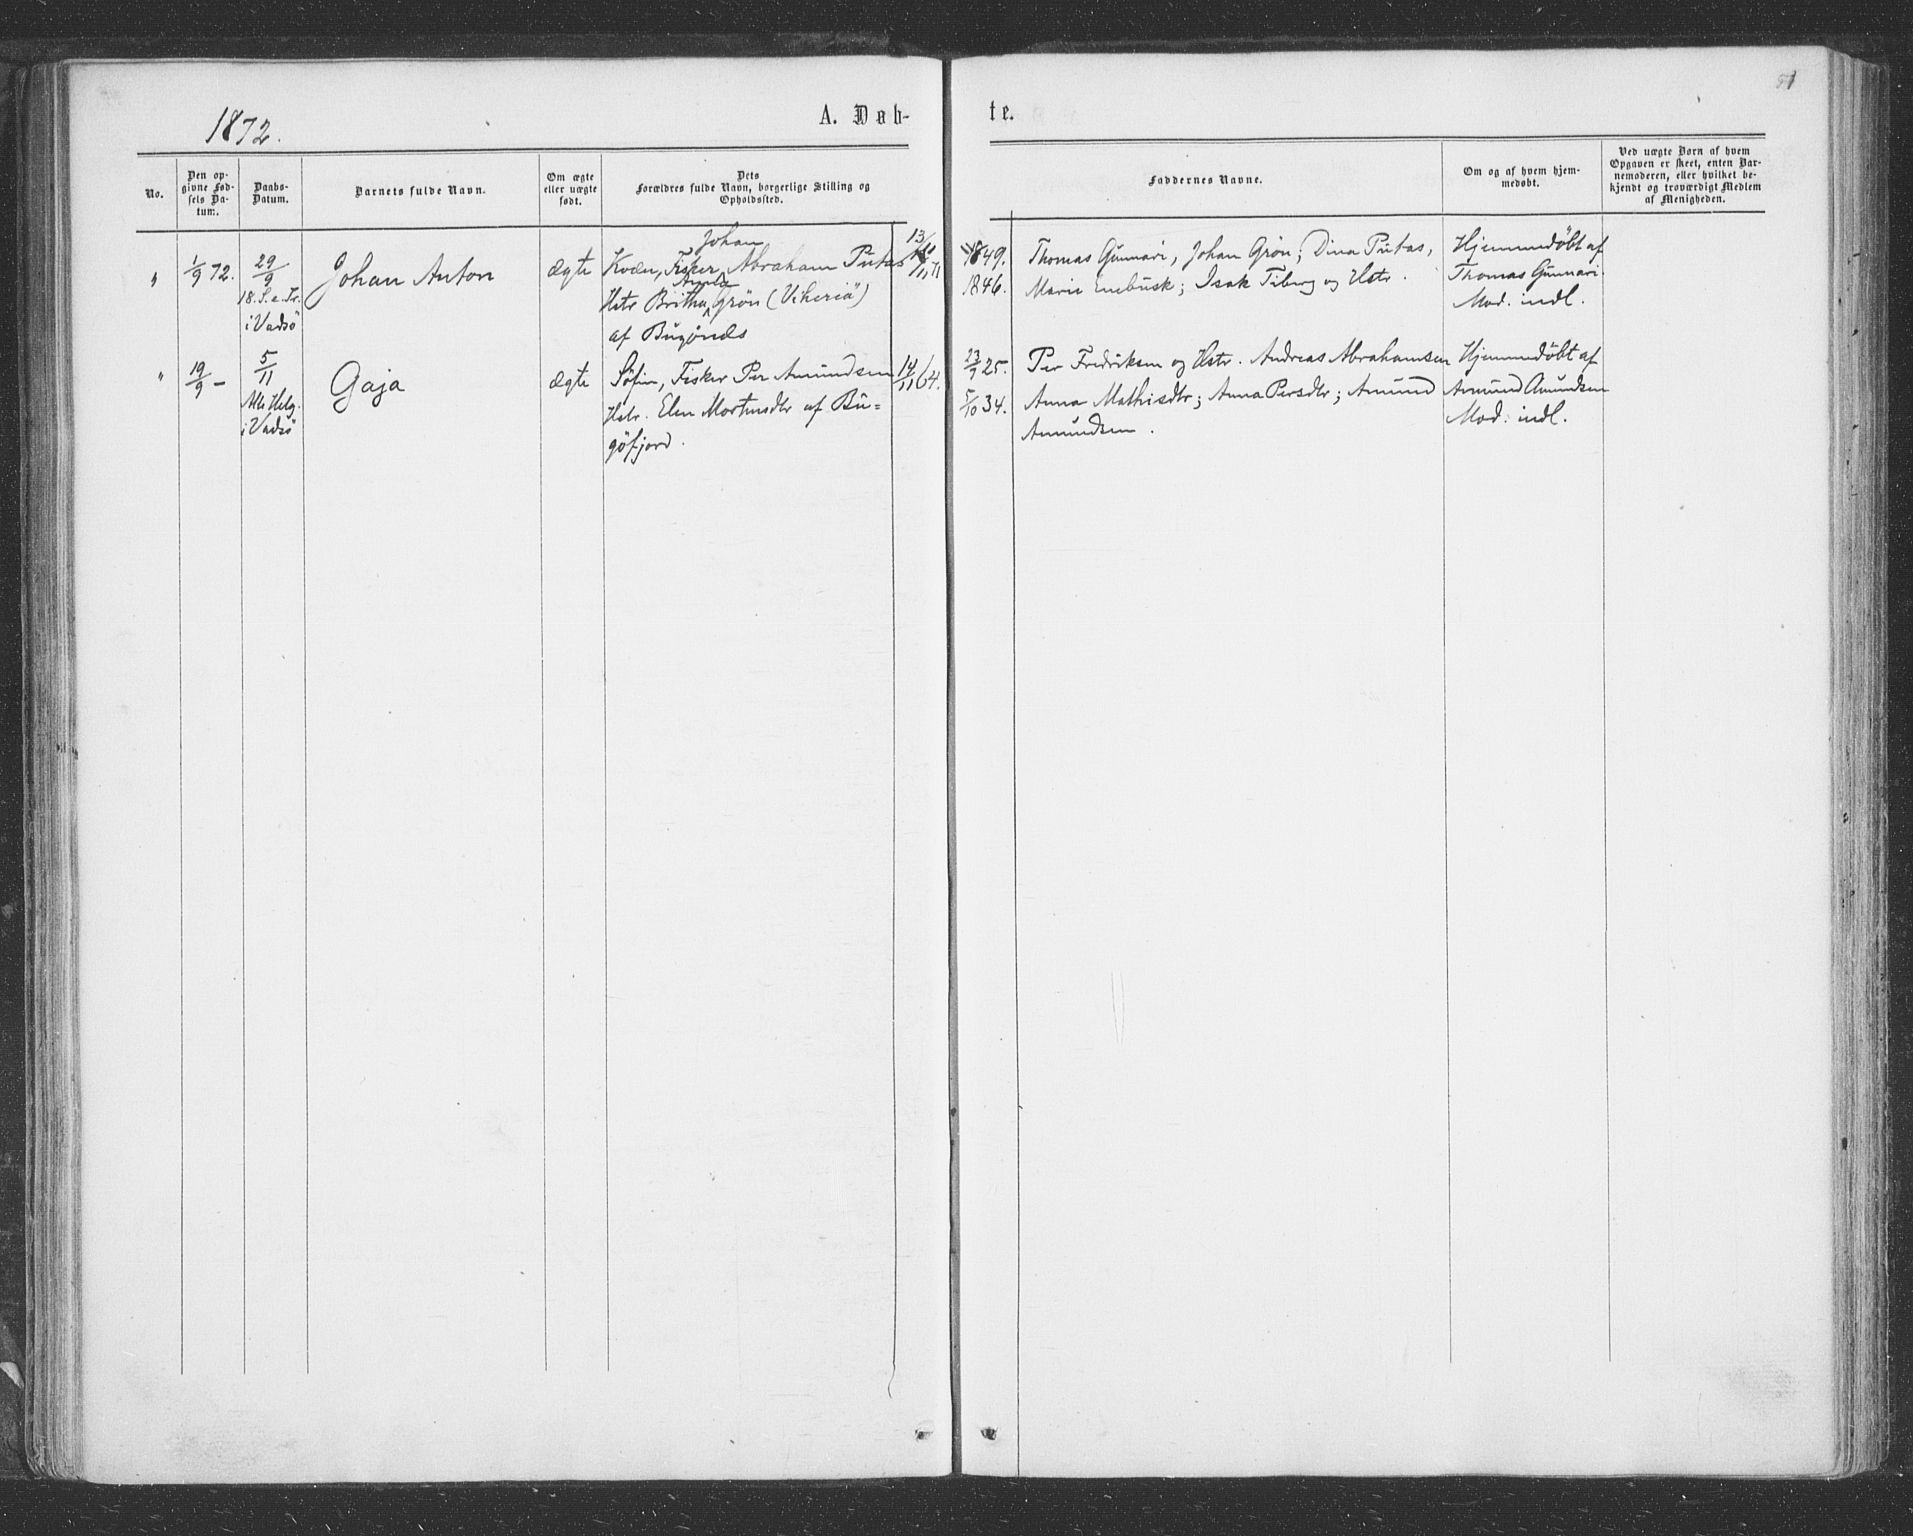 1872.
A. Døb-
te.
51
No.
Den op-
givne Fød-
sels Da-
tum.
Daabs-
Datum.
Barnets fulde Navn.
Om ægte
eller uægte
født.
Dets
Forældres fulde Navn, borgerlige Stilling og
Opholdssted.
Faddernes Navne.
Om og af hvem hjem-
medøbt.
Ved uægte Børn af hvem
Opgaven er skeet, enten Bar-
nemoderen, eller hvilket be-
kjendt og troværdigt Medlem
af Menigheden.
"
1/9 72.
29/9
18. S. e. Tr.
i Vadsö
Johan Anton
ægte
Johan
Kvæn, Fisker, Abraham Putas
Hstr Britha Grön (Viheriä)
af Bugönæs
1849.
1846.
Thomas Gunnari, Johan Grön; Dina Putas,
Marie Enebusk; Isak Tiberg og Hstr.
Hjemmedöbt af
Thomas Gunnari.
Mod. indl.
"
19/9 –
5/11
Alle Helg.
i Vadsö
Gaja
ægte
Söfin, Fisker Per Amundsen
Hstr. Elen Mortensdtr af Bu=
göfjord.
14/11 64.
23/9 25.
5/10 34.
Per Fredriksen og Hstr. Andreas Abrahamsen
Anna Mathisdtr; Anna Persdtr; Amund
Amundsen.
Hjemmedöbt af
Amund Amundsen
Mod. indl.